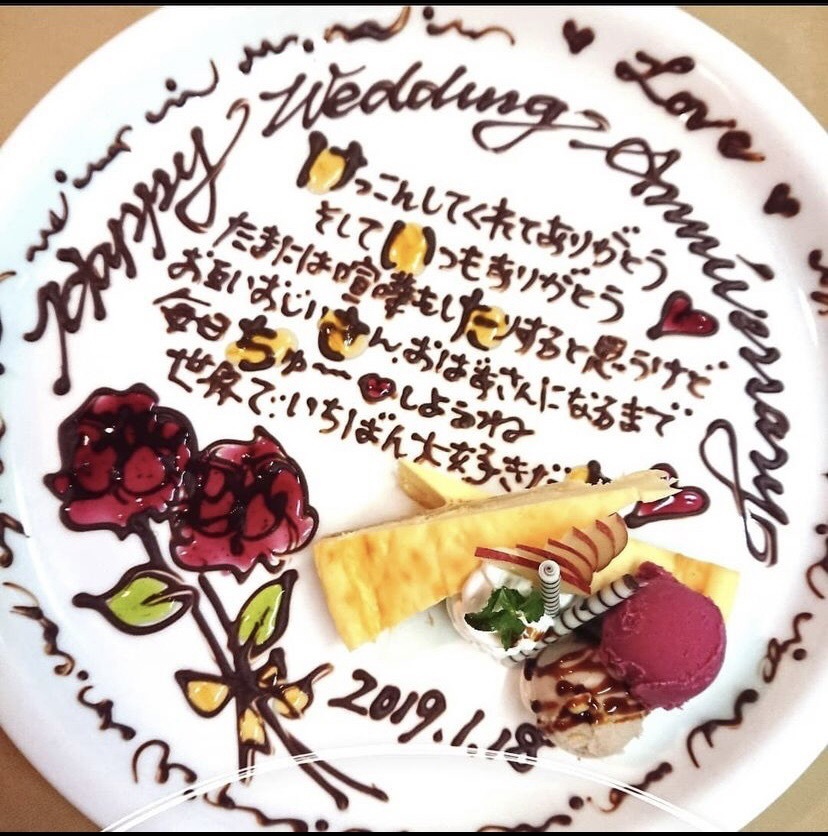 Happy Wedding Anniversary
Love
けっこんしてくれてありがとう
そしていつもありがとう
たまには喧嘩もしたりすると思うけど
お互いおじいさん、おばあさんになるまで
毎日ちゅ〜しようね
世界でいちばん大好きだ
2019.1.18